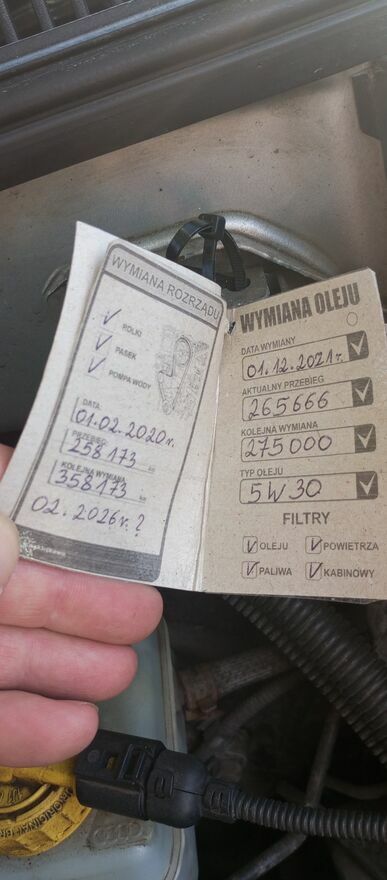 WYMIANA ROZRZĄDU
✓ ROLKI
✓ PASEK
✓ POMPA WODY
DATA
01.02.2020r.
PRZEBIEG
258173 km
KOLEJNA WYMIANA
358173 km
02.2026r.?
WYMIANA OLEJU
DATA WYMIANY
01.12.2021r.
AKTUALNY PRZEBIEG
265666
KOLEJNA WYMIANA
275000
TYP OLEJU
5W30
FILTRY
✓ OLEJU ✓ POWIETRZA
✓ PALIWA ✓ KABINOWY